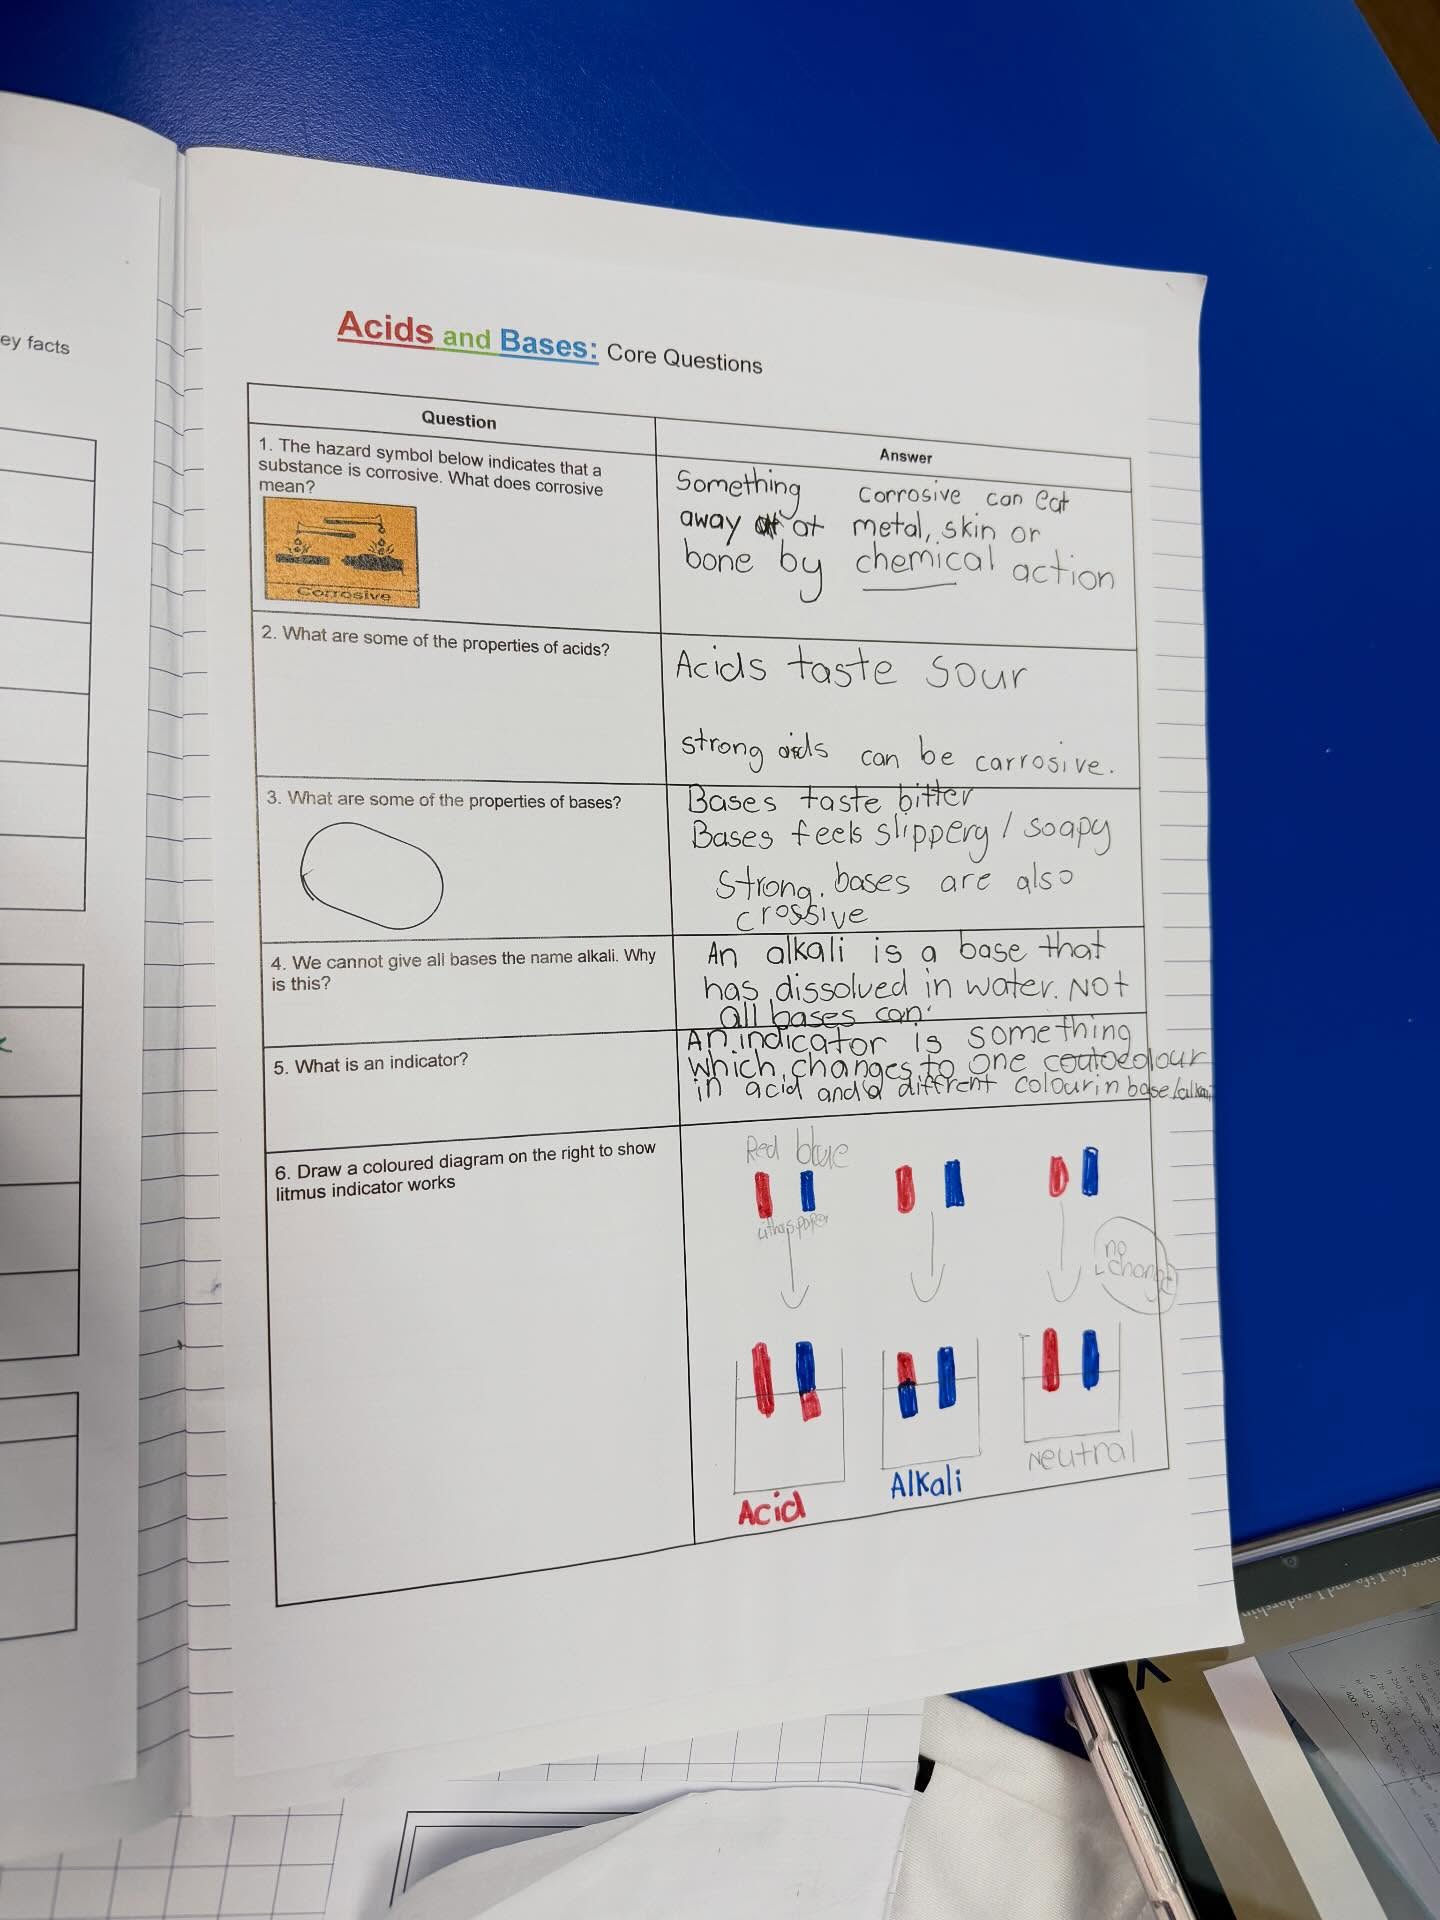 ey facts
Acids and Bases: Core Questions
Question
Answer
1. The hazard symbol below indicates that a
substance is corrosive. What does corrosive
mean?
Corrosive
Something corrosive can eat
away at metal, skin or
bone by chemical action
2. What are some of the properties of acids?
Acids taste sour
strong aids can be carrosive.
3. What are some of the properties of bases?
Bases taste bitter
Bases feels slippery / soapy
Strong. bases are also
crossive
4. We cannot give all bases the name alkali. Why
is this?
An alkali is a base that
has dissolved in water. NOt
all bases can.
5. What is an indicator?
An indicator is something
which changes to one colour
in acid and a diffrent colour in base/
6. Draw a coloured diagram on the right to show
litmus indicator works
Red blue
no
change
Acid
Alkali
Neutral